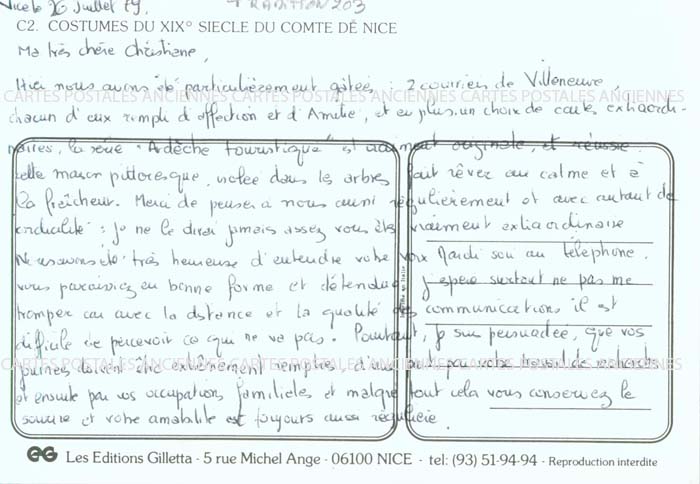 Nice le 26 Juillet 79.
TRADITION 203
C2. COSTUMES DU XIX° SIECLE DU COMTE DE NICE
Ma très chère Christiane,
Hier nous avons été particulièrement gâtées : 2 courriers de Villeneuve,
CARTES POSTALES ANCIENNES CARTES POSTALES ANCIENNES CARTES POSTALES ANCIENNES
chacun d'eux rempli d'affection et d'Amitié, et en plus, un choix de cartes extraordi-
naires, la série "Ardèche touristique" est vraiment originale, et réussie.
cette maison pittoresque, isolée dans les arbres fait rêver au calme et à
la fraîcheur. Merci de penser à nous aussi régulièrement et avec autant de
cordialité : je ne le dirai jamais assez vous êtes vraiment extraordinaire
Nous avons été très heureuse d'entendre votre voix Mardi soir au téléphone.
vous paraissiez en bonne forme et détendue j'espère surtout ne pas me
tromper car avec la distance et la qualité des communications il est
difficile de percevoir ce qui ne va pas. Pourtant, je suis persuadée, que vos
CARTES POSTALES ANCIENNES CARTES POSTALES ANCIENNES CARTES POSTALES ANCIENNES
journées doivent être extrêmement remplies d'une part par votre travail de recherche
et ensuite par vos occupations familiales et malgré tout cela vous conservez le
sourire et votre amabilité est toujours aussi régulière.
Les Editions Gilletta - 5 rue Michel Ange - 06100 NICE - tel: (93) 51-94-94 - Reproduction interdite